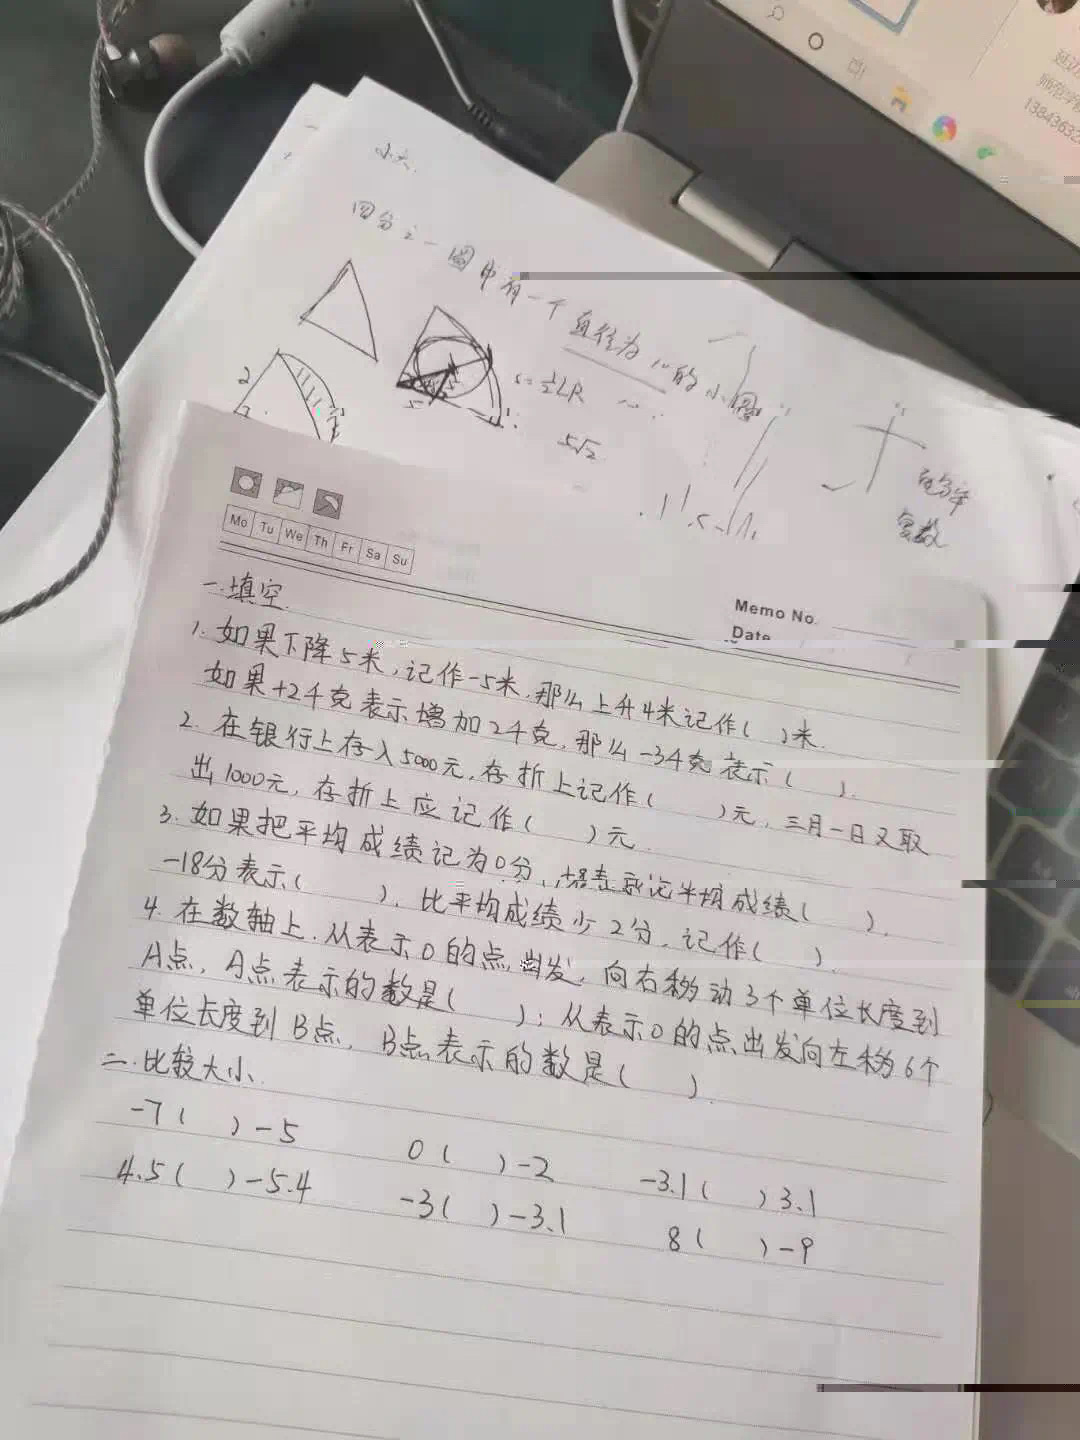 小六
四分之一圆中有一个直径为10的小圆
2
S=½LR
5
5√2
百分率
复数
Mo Tu We Th Fr Sa Su
Memo No.
Date
一.填空.
1. 如果下降5米,记作-5米,那么上升4米记作( )米.
如果+2千克表示增加2千克,那么-3千克表示( ).
2. 在银行上存入5000元,存折上记作( )元,三月一日又取
出1000元,存折上应记作( )元.
3. 如果把平均成绩记为0分,平均成绩( ).
-18分表示( ),比平均成绩少2分,记作( ).
4. 在数轴上.从表示0的点出发,向右移动3个单位长度到
A点,A点表示的数是( );从表示0的点出发向左移6个
单位长度到B点,B点表示的数是( ).
二.比较大小.
-7( )-5 0( )-2 -3.1( )3.1
4.5( )-5.4 -3( )-3.1 8( )-9